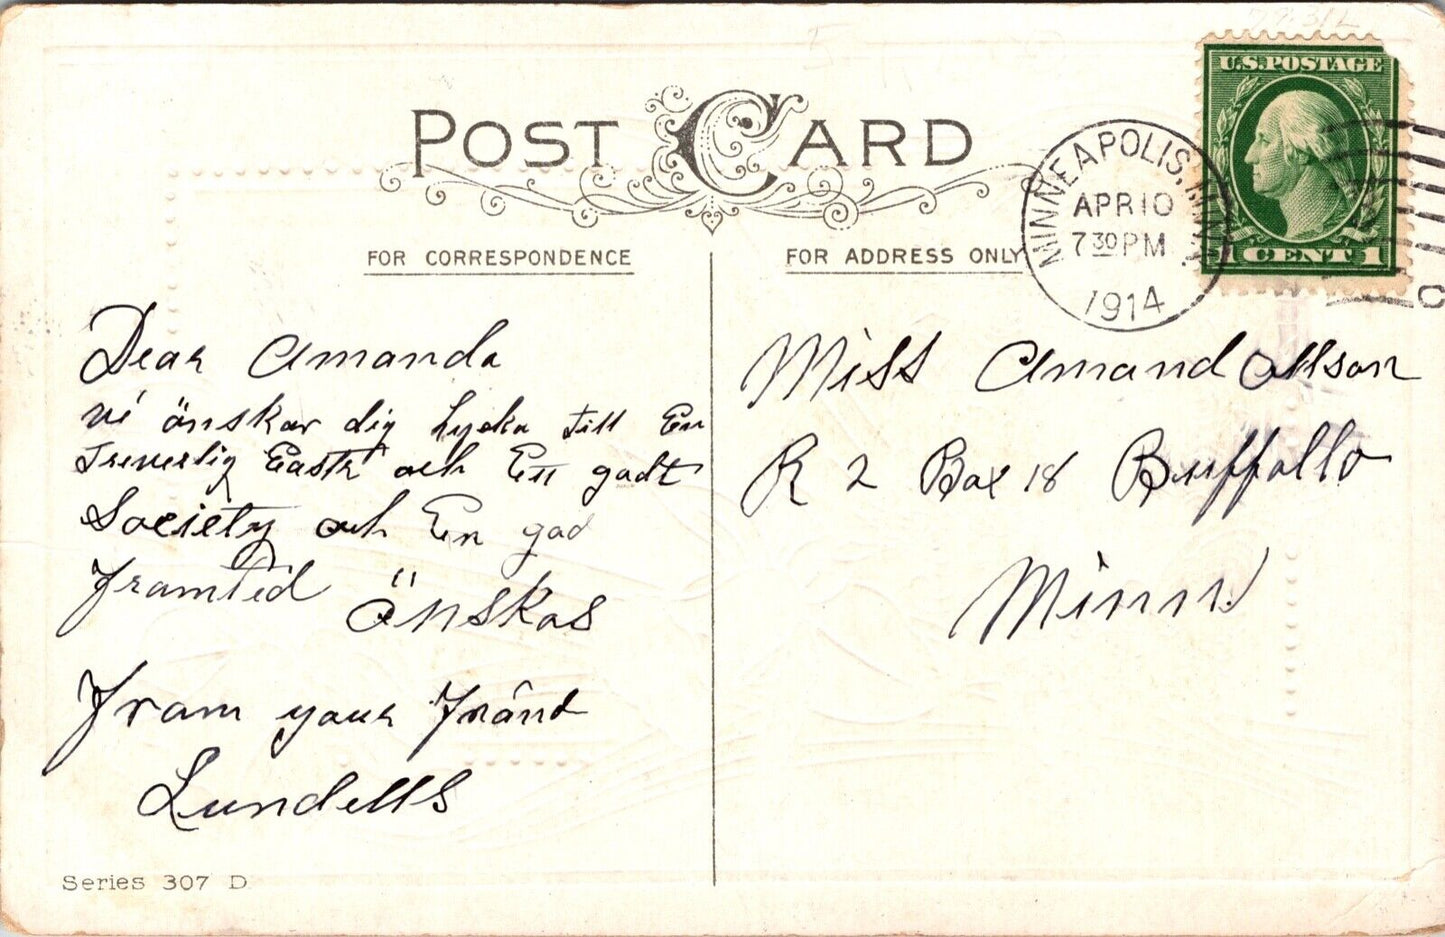 POST CARD
FOR CORRESPONDENCE
FOR ADDRESS ONLY
U.S. POSTAGE
1 CENT 1
MINNEAPOLIS, MINN.
APR 10
7 30 PM
1914
Dear Amanda
vi önskar dig lycka till En
Treverlig Easter och Ett gadt
Society och En god
framtid önskas
From your Fränd
Lundells
Miss Amand Ollson
R 2 Box 18 Buffallo
Minn
Series 307 D